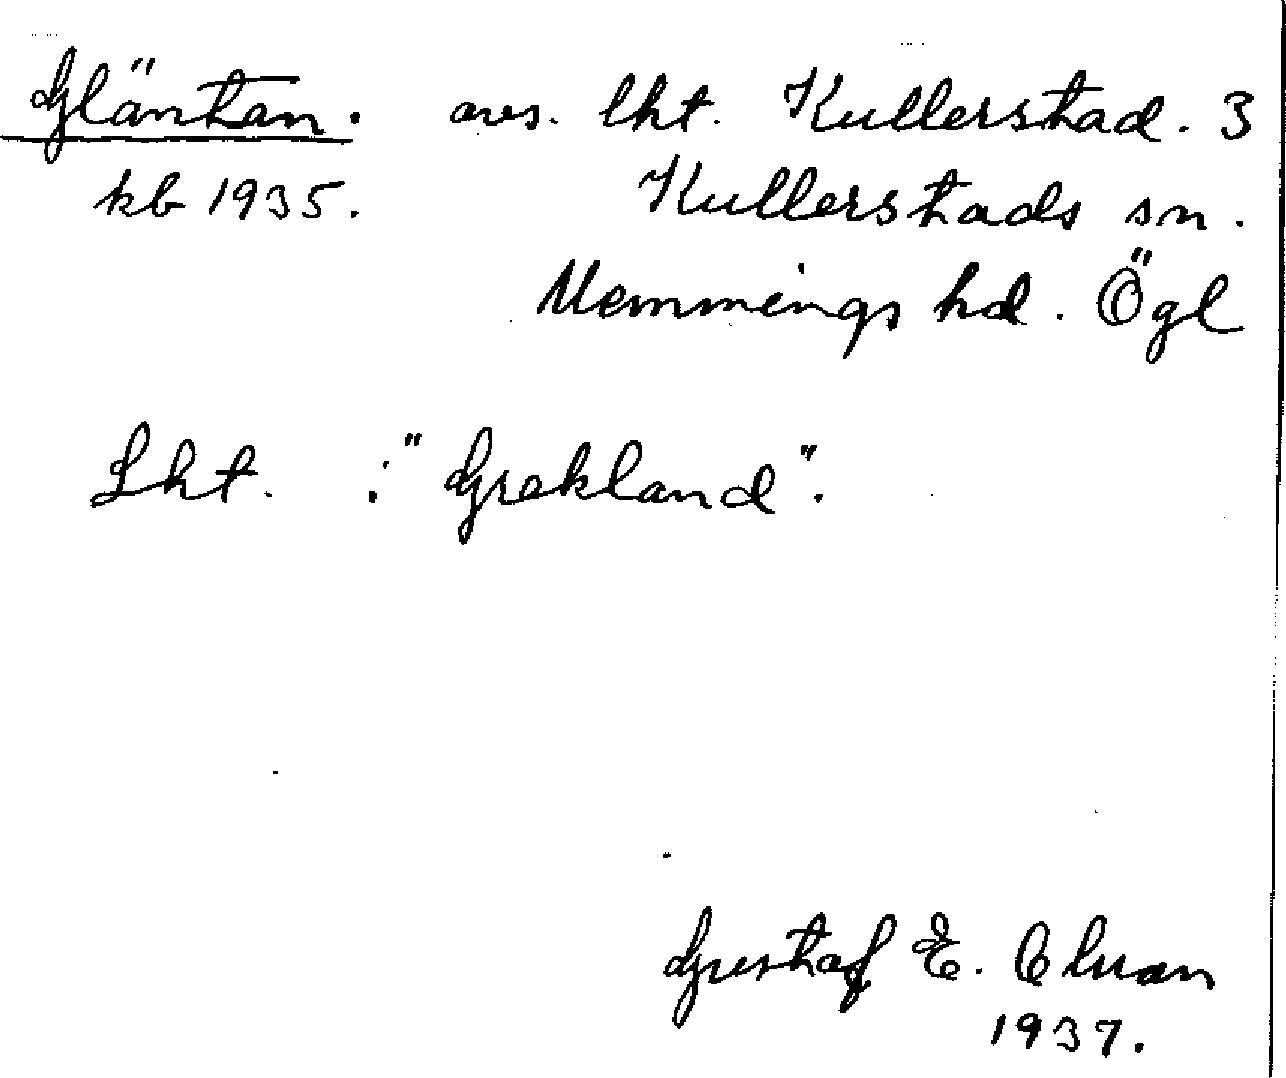 Gläntan. avs. lht. Kullerstad. 3
kb 1935. Kullerstads sn.
Memmings hd. Ögl
Lht. : "Grekland".
Gustaf E.
1937.